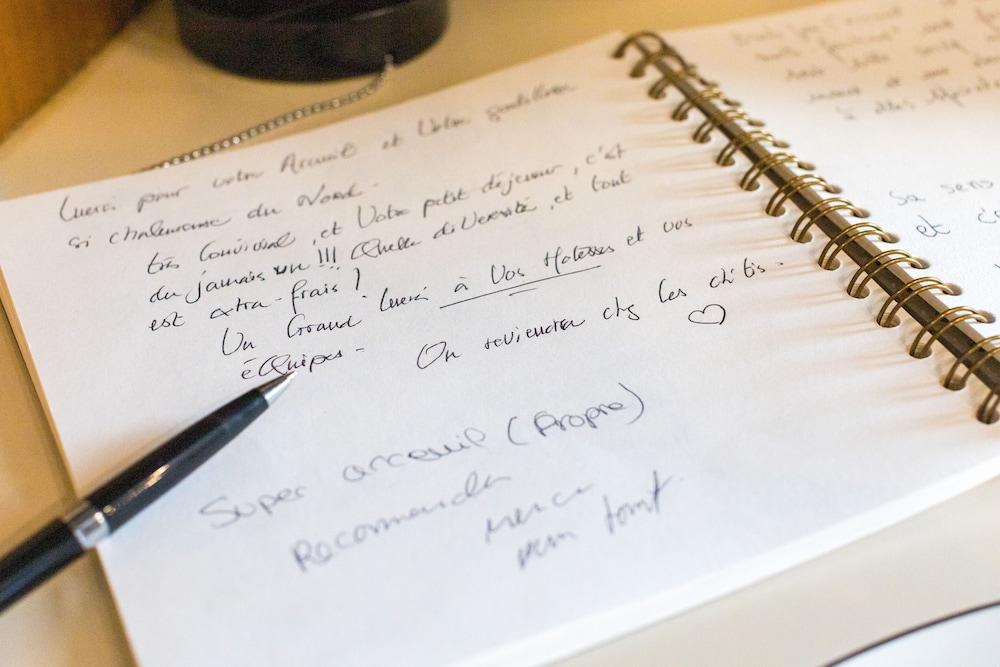 Merci pour votre Accueil et Votre gentillesse
si chaleureuse du Nord.
très Convivial, et Votre petit déjeuner, c'est
du jamais vu !!! Quelle diversité, et tout
est extra-frais !
Un Grand Merci à Vos Hotesses et vos
éQuipes -
On reviendra chez les ch'tis.
♡
Super acceuil (Propre)
Recommender
Merci
pour tout.
Sa sens
et